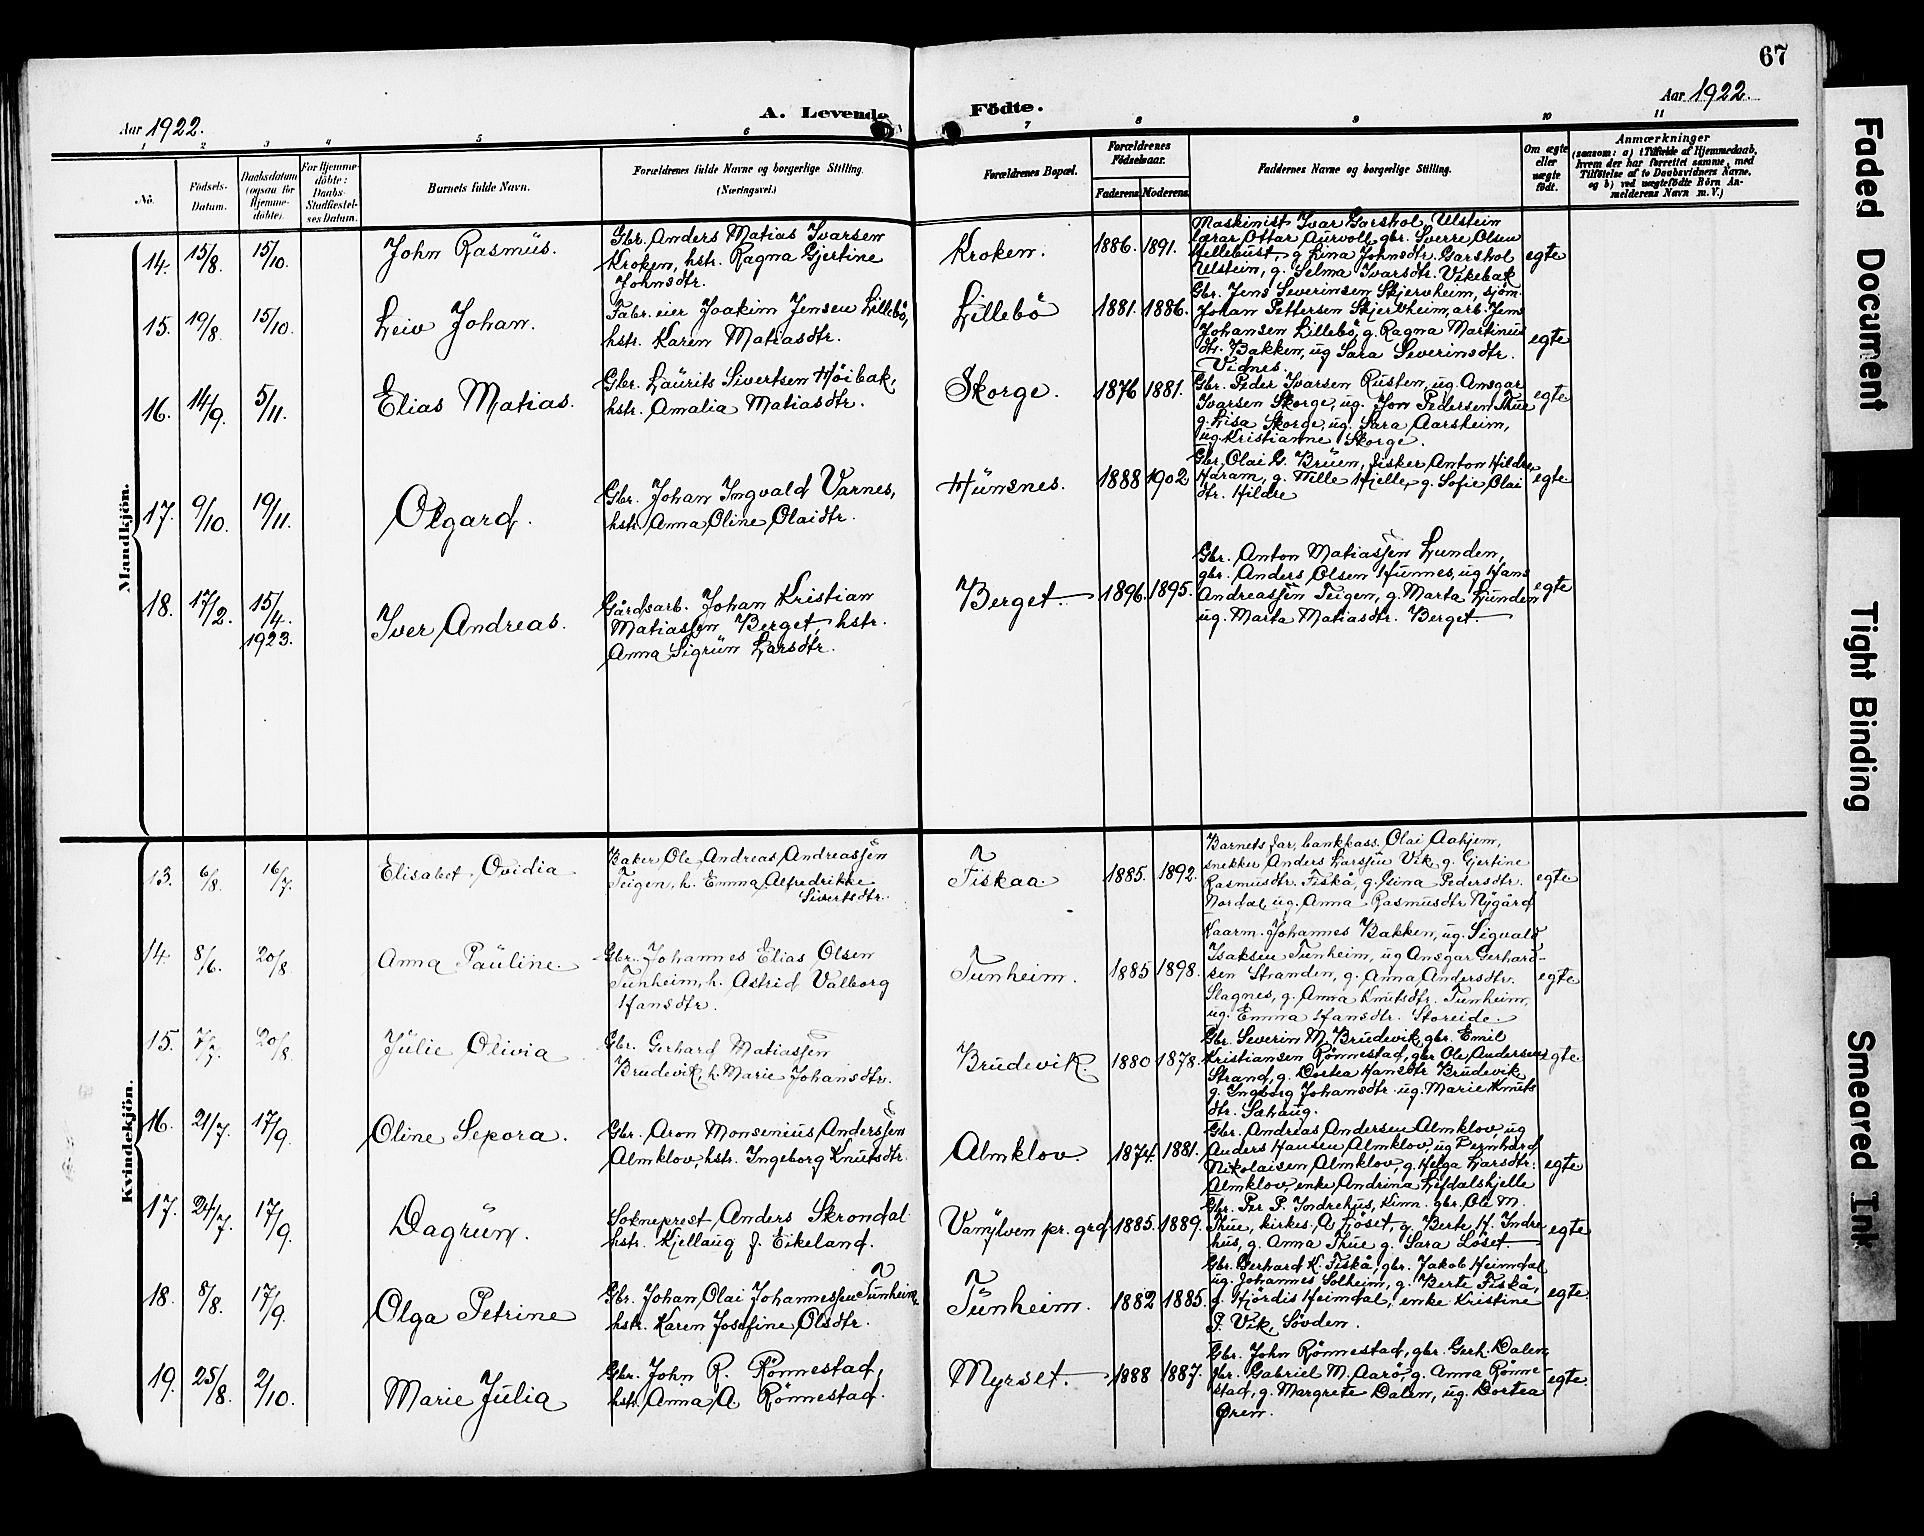 67
Aar 1922.
A. Levende Födte.
Aar 1922.
1 2 3 4 5 6 7 8 9 10 11
No.
Födsels-Datum.
Daabsdatum (ogsaa för Hjemme-döbte).
For Hjemme-döbte: Daabs-Stadfæstel-ses Datum.
Barnets fulde Navn.
Forældrenes fulde Navne og borgerlige Stilling.
(Næringsvei.)
Forældrenes Bopæl.
Forældrenes Födselsaar.
Faderens. Moderens.
Faddernes Navne og borgerlige Stilling.
Om ægte eller uægte födt.
Anmærkninger
(saasom: a) i Tilfælde af Hjemmedaab, hvem der har forrettet samme, med Tilföielse af to Daabsvidners Navne, og b) ved uægtefödte Börn Anmelderens Navn m. V.)
Mandkjön.
14. 15/8. 15/10. John Rasmus.
Gbr. Anders Matias Ivarsen
Kroken, hstr. Ragna Gjertine
Johnsdtr.
Kroken. 1886. 1891.
Maskinist Ivar Garshol, Ulstein
lærar Ottar Aurvoll, gbr. Sverre Olsen
Hellebust, g. Lina Johnsdtr. Garshol
Ulstein, g. Selma Ivarsdtr. Vikebak
egte
15. 19/8. 15/10. Leiv Johan.
Fabr. eier Joakim Jensen Lillebö,
hstr. Karen Matiasdtr.
Lillebö 1881. 1886.
Gbr. Jens Severinsen Skjervheim, sjöm.
Johan Pettersen Skjervheim, arb. Jens
Johansen Lillebö, g. Ragna Martinus
dtr. Bakken, ug Sara Severinsdtr.
Vidnes.
egte
16. 14/9. 5/11. Elias Matias.
Gbr. Laurits Sivertsen Höibak,
hstr. Amalia Matiasdtr.
Skorge. 1876 1881.
Gbr. Peder Ivarsen Rusten, ug. Ansgar
Ivarsen Skorge, ug. Jon Pedersen Thue
g. Lisa Skorge, ug. Sara Aarsheim,
ug. Kristianne Skorge.
egte
17. 9/10. 19/11. Olgard.
Gbr. Johan Ingvald Varnes,
hstr. Anna Oline Olaidtr.
Hunsnes. 1888 1902
Gbr. Olai G. Bruen, fisker Anton Hildre
Haram, g. Wille Hjelle, g. Sofie Olai
dtr. Hildre
egte
18. 17/2. 15/4. 1923. Iver Andreas.
Gårdsarb. Johan Kristian
Matiassen Berget, hstr.
Anna Sigrun Larsdtr.
Berget. 1896. 1895.
Gbr. Anton Matiassen Lunden,
gbr. Anders Olsen Hunnes, ug Hans
Andreassen Teigen, g. Marta Lunden
ug. Marta Matiasdtr. Berget.
egte
Kvindekjön.
13. 6/8. 16/7. Elisabet Ovidia
Baker Ole Andreas Andreassen
Teigen, h. Emma Alfredrikke
Sivertsdtr.
Fiskaa 1885. 1892.
Barnets far, bankkass. Olai Aahjem,
snekker Anders Larssen Vik, g. Gjertine
Rasmusdtr. Fiskå, g. Jsina Pedersdtr.
Nordal, ug. Anna Rasmusdtr Nygård
egte
14. 8/6. 20/8. Anna Pauline.
Gbr. Johannes Elias Olsen
Tunheim, h. Astrid Valborg
Hansdtr.
Tunheim. 1885 1898.
Kaarm. Johannes Bakken, ug. Sigvald
Isaksen Tunheim, ug Ansgar Gerhard-
sen Stranden, g. Anna Andersdtr.
Slagnes, g. Anna Knutsdtr. Tunheim,
ug. Emma Hansdtr. Storeide.
egte
15. 7/7. 20/8. Julie Olivia
Gbr. Gerhard Matiassen
Brudevik, h. Marie Johansdtr.
Brudevik. 1880 1878.
Gbr. Severin M. Brudevik, gbr. Emil
Kristiansen Rönnestad, gbr Ole Andersen
Strand, g. Dortea Hansdtr Brudevik
g. Ingborg Johansdtr ug. Marie Knuts
dtr. Sæhaug.
egte
16. 21/7. 17/9. Oline Sepora.
Gbr. Aron Monsenius Anderssen
Almklov, hstr. Ingeborg Knutsdtr.
Almklov. 1874. 1881.
Gbr. Andreas Andersen Almklov, ug
Anders Hansen Almklov, ug Bernhard
Nikolaisen Almklov, g. Helga Larsdtr.
Almklov, enke Andrina Lifdalshjelle
egte
17. 24/7. 17/9. Dagrun.
Sokneprest Anders Skrondal
hstr. Kjellaug f. Eikeland.
Vanylven pr. grd 1885. 1889.
Gbr. Per P. Indrehus, Kinn. gbr. Ole M.
Thue, kirkes. A Löset, g. Berte H. Indre
hus, g. Anna Thue g. Sara Löset.
egte
18. 8/8. 17/9. Olga Petrine
Gbr. Johan Olai Johannessen Tunheim,
hstr. Karen Josefine Olsdtr.
Tunheim. 1882 1885.
Gbr. Gerhard K. Fiskå, gbr. Jakob Heimdal
ug. Johannes Solheim, g. Berte Fiskå,
g. Hjördis Heimdal, enke Kristine
P. Vik, Sövden.
egte.
19. 25/8. 2/10. Marie Julia
Gbr. John R. Rönnestad,
hstr. Anna A Rönnestad.
Myrset. 1888 1887.
Gbr. John Rönnestad, gbr. Gerh. Dalen,
fbr. Gabriel M. Aarö, g. Anna Rönne
stad, g. Margrete Dalen, ug. Dortea
Ören.
egte.
Faded Document
Tight Binding
Smeared Ink